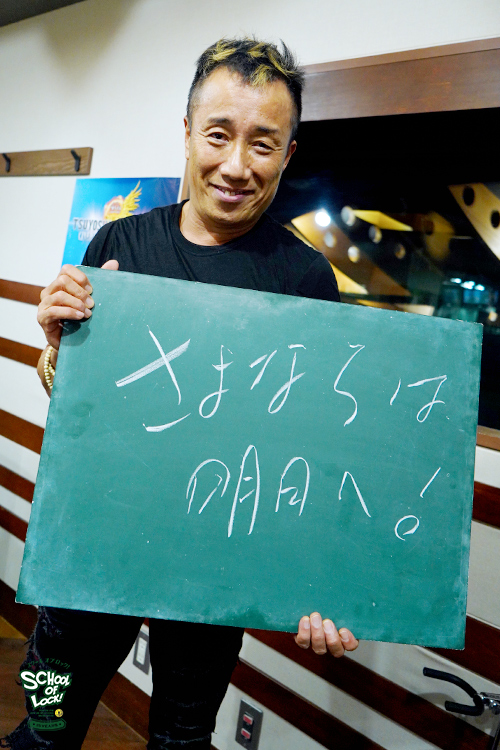 さよならは
明日へ!
TSUYOS
SCHOOL
OF
LOCK!